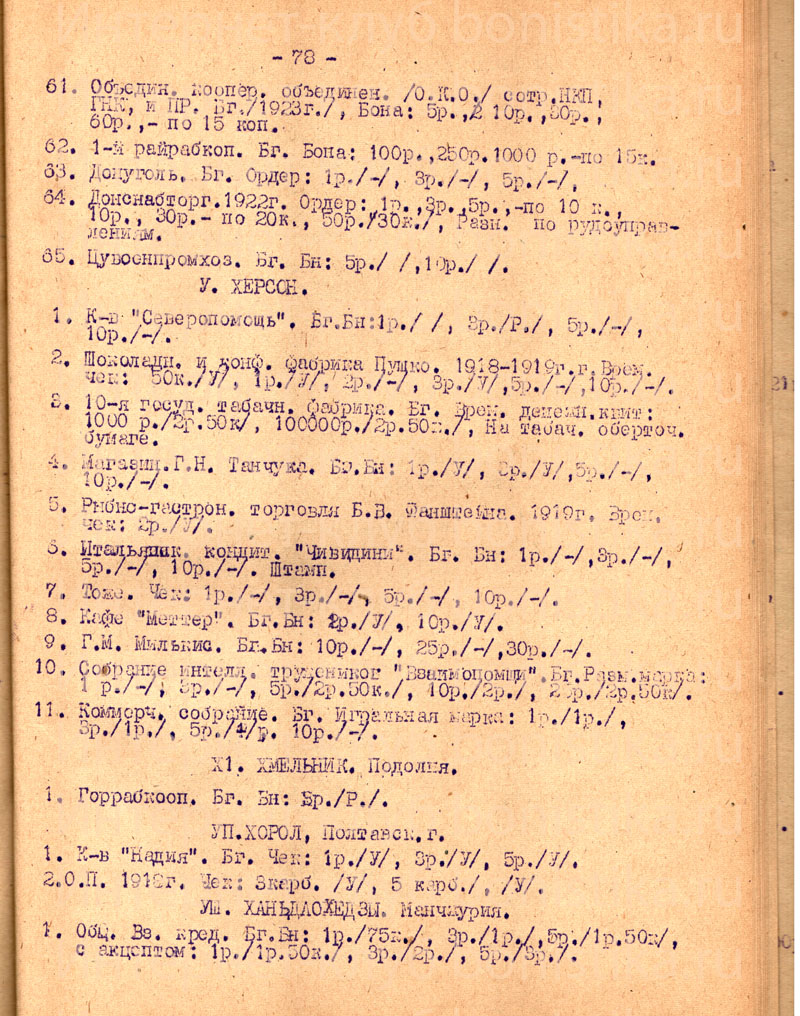 Интернет-клуб bonistika.ru
- 78 -
61. Объедин. коопер. объединен. /О.К.О./ сотр.НКП,
ГНК, и ПР. Бг./1923г./, Бона: 5р., 10р.,30р.,
60р.,- по 15 коп.
62. 1-й райрабкоп. Бг. Бона: 100р.,250р.1000 р.-по 15к.
63. Донуголь. Бг. Ордер: 1р./-/, 3р./-/, 5р./-/,
64. Донснабторг.1922г. Ордер: 1р.,3р.,5р.,-по 10 к.,
10р., 30р.- по 20к., 50р./30к./, Разн. по рудоуправ-
лениям.
65. Цувоенпромхоз. Бг. Бн: 5р./ /,10р./ /.
У. ХЕРСОН.
1. К-в "Северопомощь". Бг.Бн:1р./ /, 3р./Р./, 5р./-/,
10р./-/.
2. Шоколадн. и конф. фабрика Пушко. 1918-1919г.г.Врем.
чек: 50к./У/, 1р./У/, 2р./-/, 3р./У/,5р./-/,10р./-/.
3. 10-я госуд. табачн. фабрика. Бг. Врем. денежн.квит:
1000 р./2р.50к/, 100000р./2р.50к./, На табач. оберточ.
бумаге.
4. Магазин.Г.Н. Танчука. Бг.Бн: 1р./У/, 3р./У/,5р./-/,
10р./-/.
5. Рыбно-гастрон. торговля Б.В. Файнштейна. 1919г. Врем.
чек: 2р./У/.
6. Итальянск. кондит. "Чивидини". Бг. Бн: 1р./-/,3р./-/,
5р./-/, 10р./-/. Штамп.
7. Тоже. Чек: 1р./-/, 3р./-/, 5р./-/, 10р./-/.
8. Кафе "Меттер". Бг.Бн: р./У/, 10р./У/.
9. Г.М. Милькис. Бг.Бн: 10р./-/, 25р./-/,30р./-/.
10. Собрание интелл. тружеников "Взаимопомщи".Бг.Разм.марка:
1 р./-/, 3р./-/, 5р./2р.50к./, 10р./2р./, 25р./2р.50к/.
11. Коммерч. собрание. Бг. Игральная марка: 1р./1р./,
3р./1р./, 5р./ /р. 10р./-/.
Х1. ХМЕЛЬНИК. Подолия.
1. Горрабкооп. Бг. Бн: р./Р./.
УП.ХОРОЛ, Полтавск.г.
1. К-в "Надия". Бг. Чек: 1р./У/, 3р./У/, 5р./У/.
2.О.П. 1918г. Чек: 3карб. /У/, 5 карб./, /У/.
УШ. ХАНЬДАОХЕДЗЫ. Манчжурия.
1. Общ. Вз. кред. Бг.Бн: 1р./75к./, 3р./1р./,5р./1р.50к/,
с акцептом: 1р./1р.50к./, 3р./2р./, 5р./3р./.